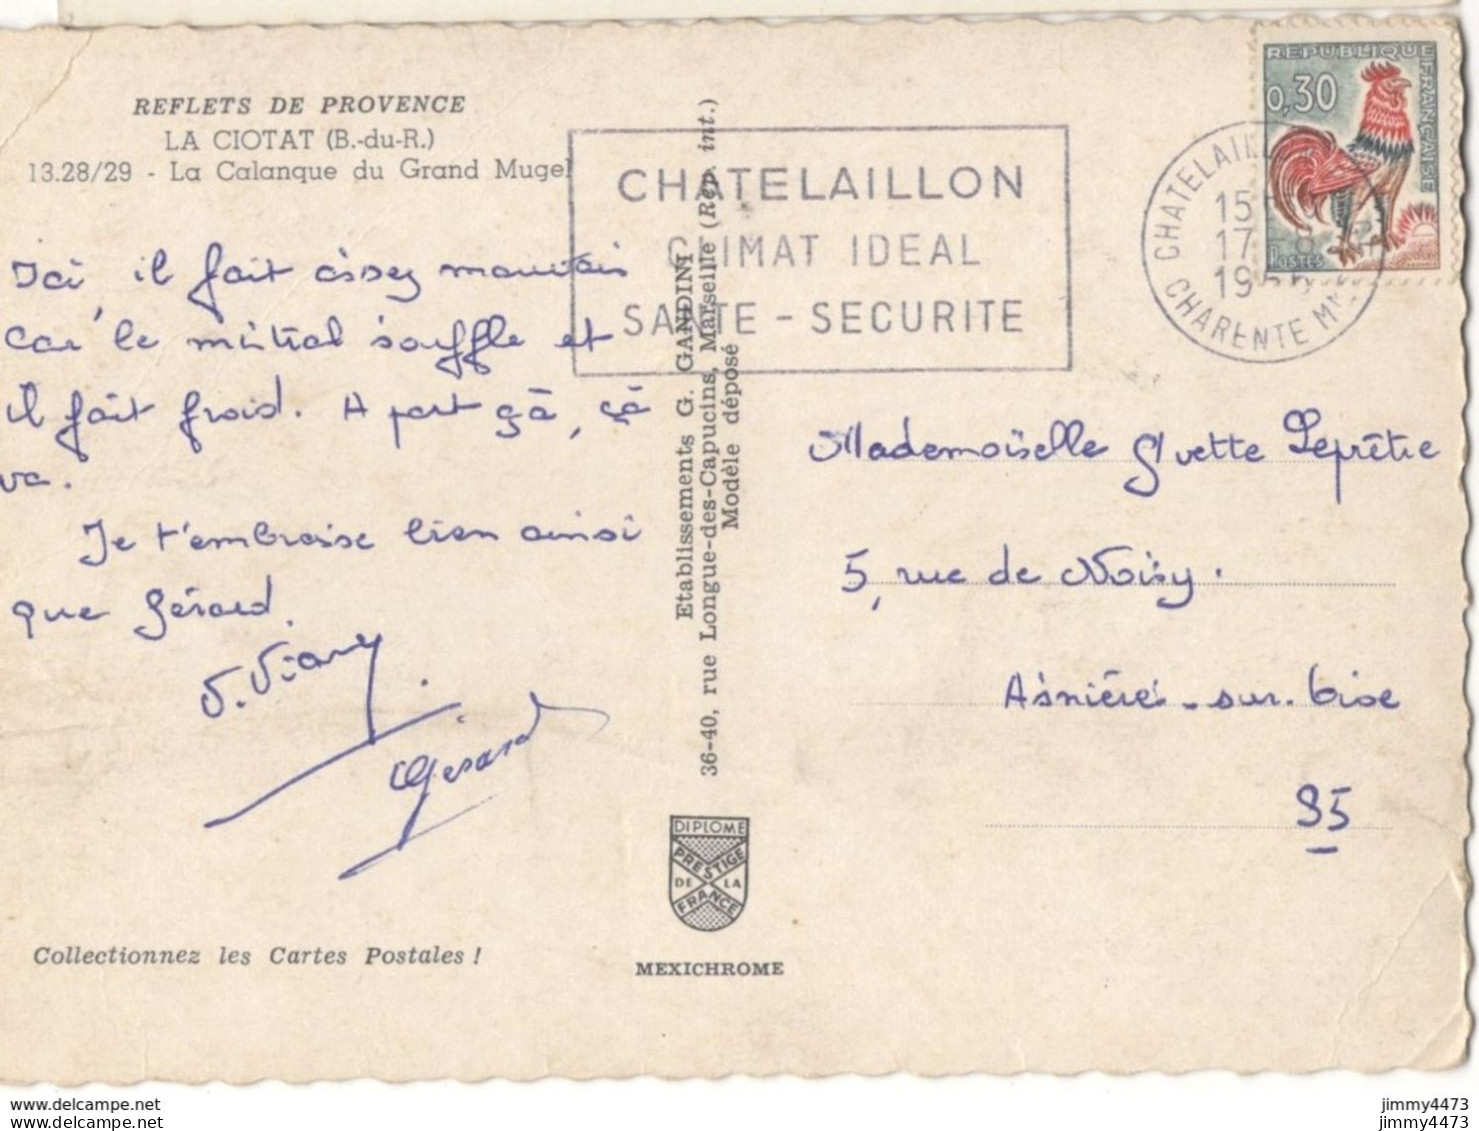 REFLETS DE PROVENCE
LA CIOTAT (B.-du-R.)
13.28/29 - La Calanque du Grand Mugel
Ici, il fait assez mauvais
car le mistral souffle et
il fait froid. A part çà, çà
va.
Je t'embrasse bien ainsi
que Gérard.
Gérard
Collectionnez les Cartes Postales !
Etablissements G. GANDINI
36-40, rue Longue-des-Capucins, Marseille (Rép. int.)
Modèle déposé
DIPLOME
PRESTIGE
DE LA
FRANCE
MEXICHROME
CHATELAILLON
CLIMAT IDEAL
SANTE - SECURITE
CHARENTE MME
15
17
19
REPUBLIQUE FRANÇAISE
0,30
POSTES
Mademoiselle Yvette Leprêtre
5, rue de Noisy.
Asnières-sur-Oise
95
jimmy4473
jimmy4473
jimmy4473
jimmy4473